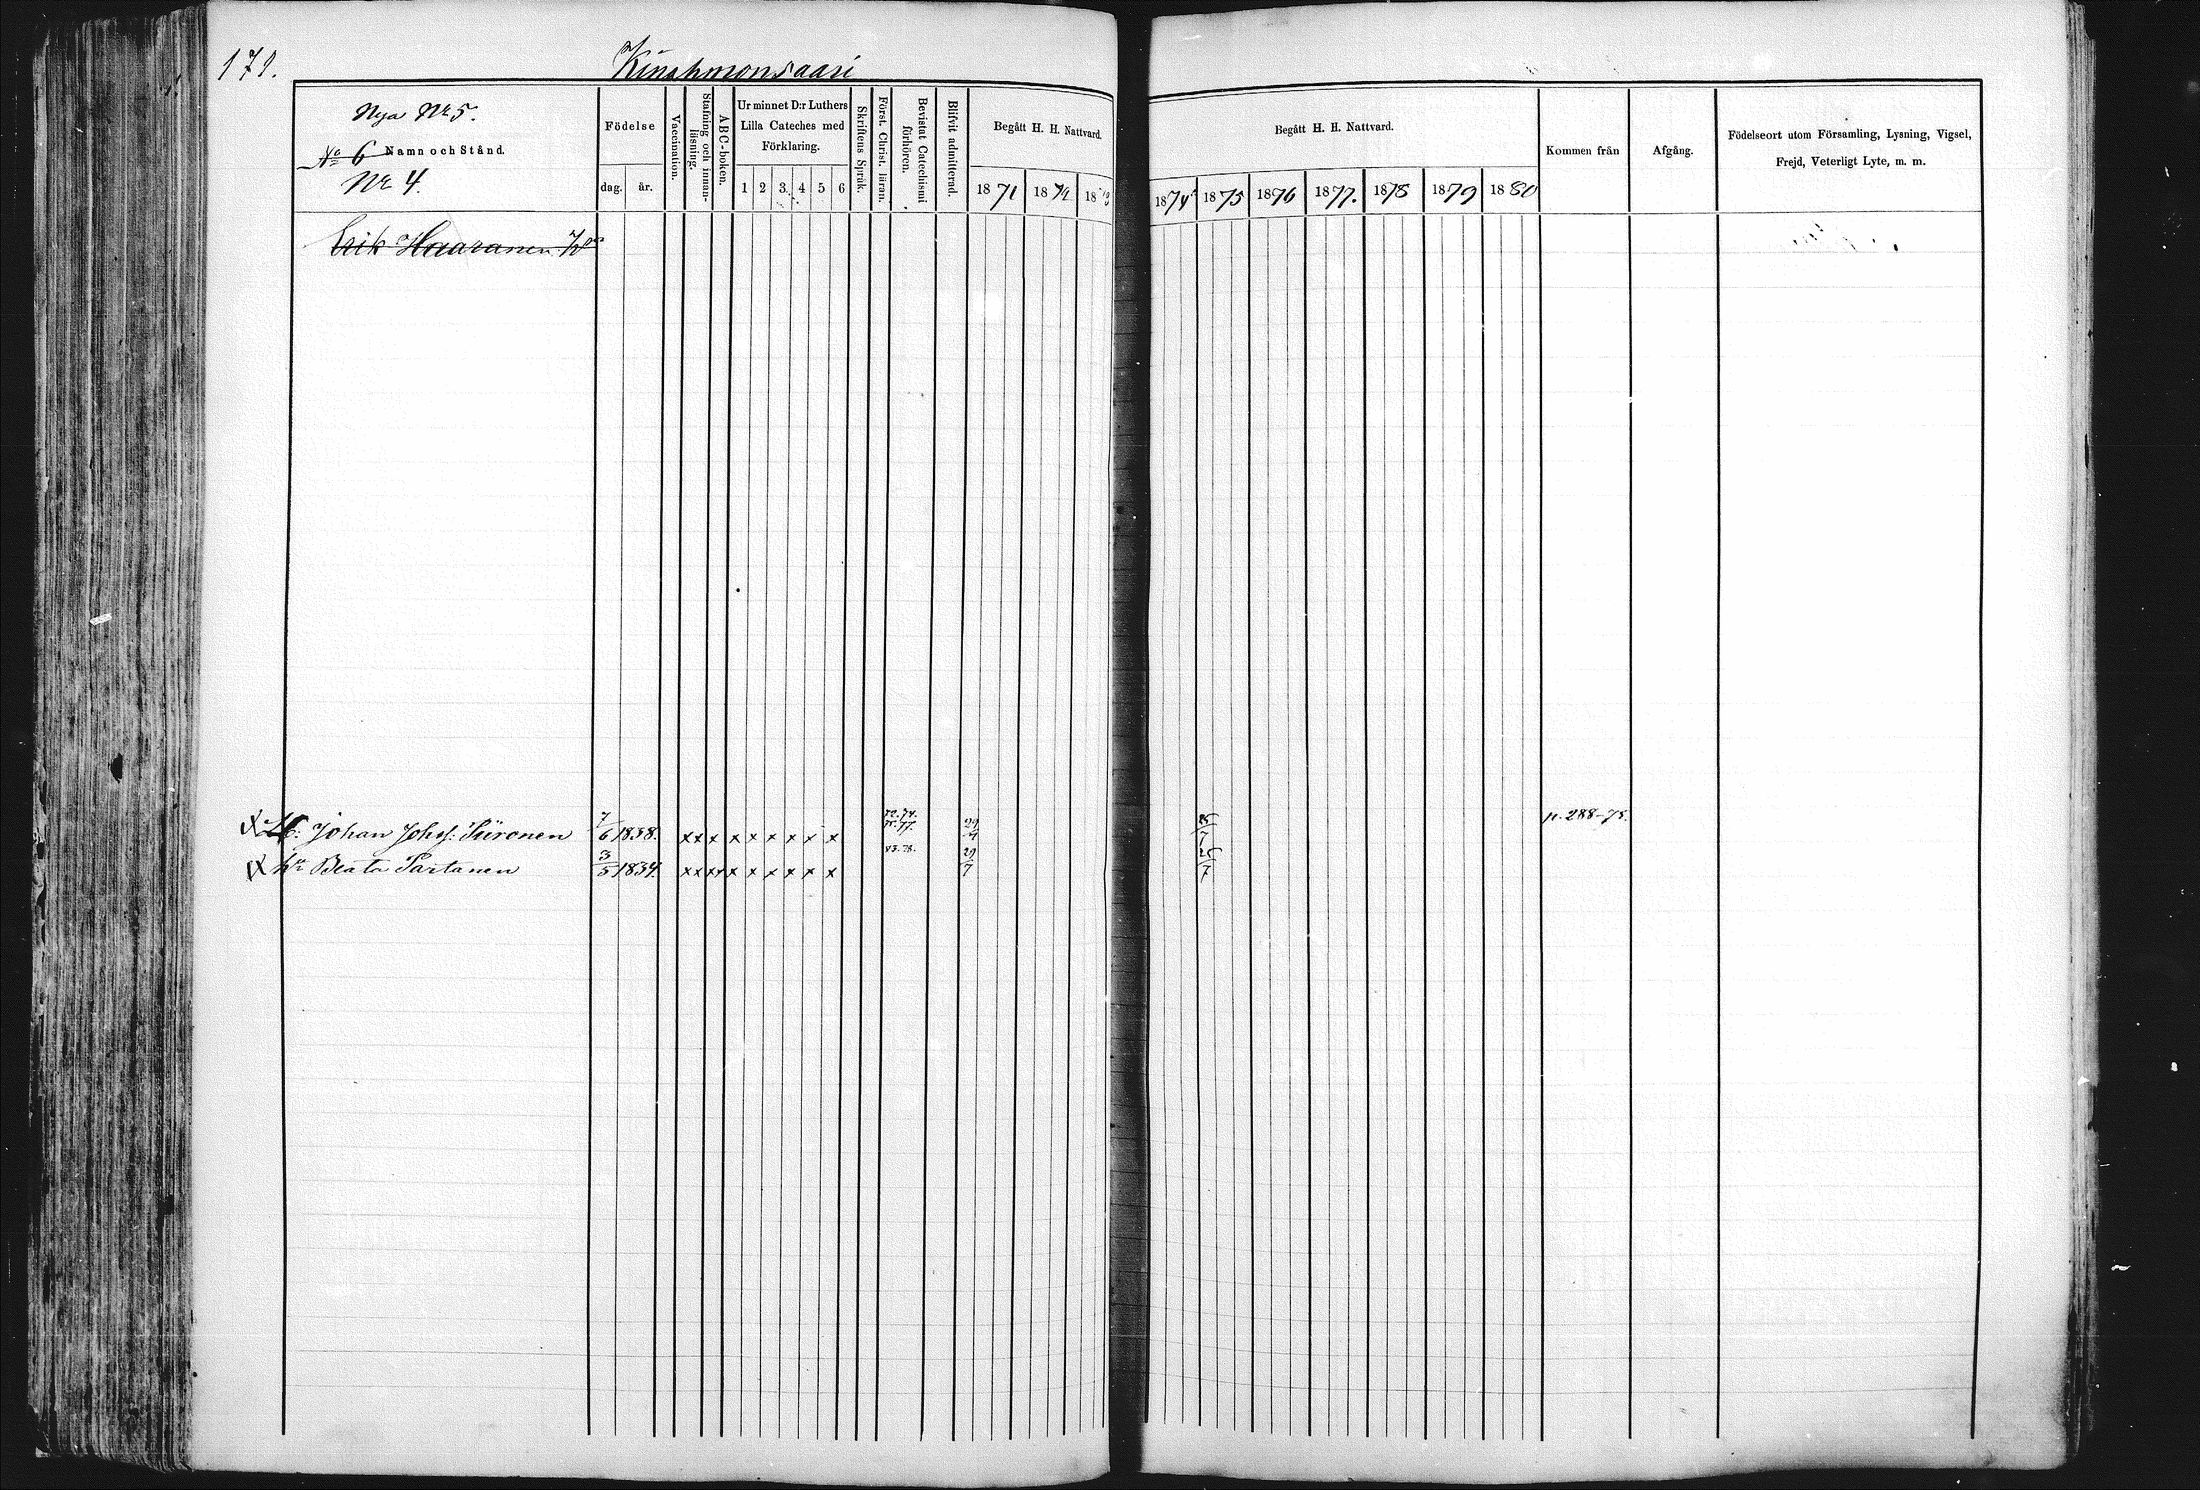 171.
Kinahmonsaari
Nya No 5.
No 6 Namn och Stånd.
No 4.
Födelse
dag. år.
Vaccination.
Stafning och innanläsning.
ABC-boken.
Ur minnet D:r Luthers Lilla Cateches med Förklaring.
1 2 3 4 5 6
Skriftens Språk.
Först. Christ. läran.
Bevistat Catechismi förhören.
Blifvit admitterad.
Begått H. H. Nattvard.
1871 1872 18
Begått H. H. Nattvard.
1874 1875 1876 1877. 1878 1879 1880
Kommen från
Afgång.
Födelseort utom Församling, Lysning, Vigsel,
Frejd, Veterligt Lyte, m. m.
Erik Haaranen
Johan Johss: Piironen 7/6 1838. x x x x x x x x x 72. 74. 75. 77. p. 288-75.
x hu Beata Partanen 3/5 1834. x x x x x x x x x x 73. 75. 29/7